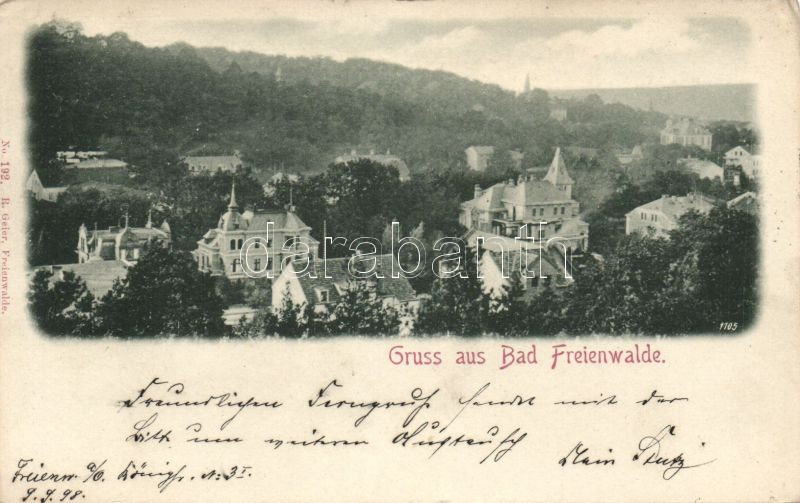 No. 192. R. Geier, Freienwalde.
darabanth
1705
Gruss aus Bad Freienwalde.
Freundlichen Ferngruß sendet mit der
Bitt um weiteren Austausch
Freienw. a/O. Königst. N: 3I.
9.9.98.